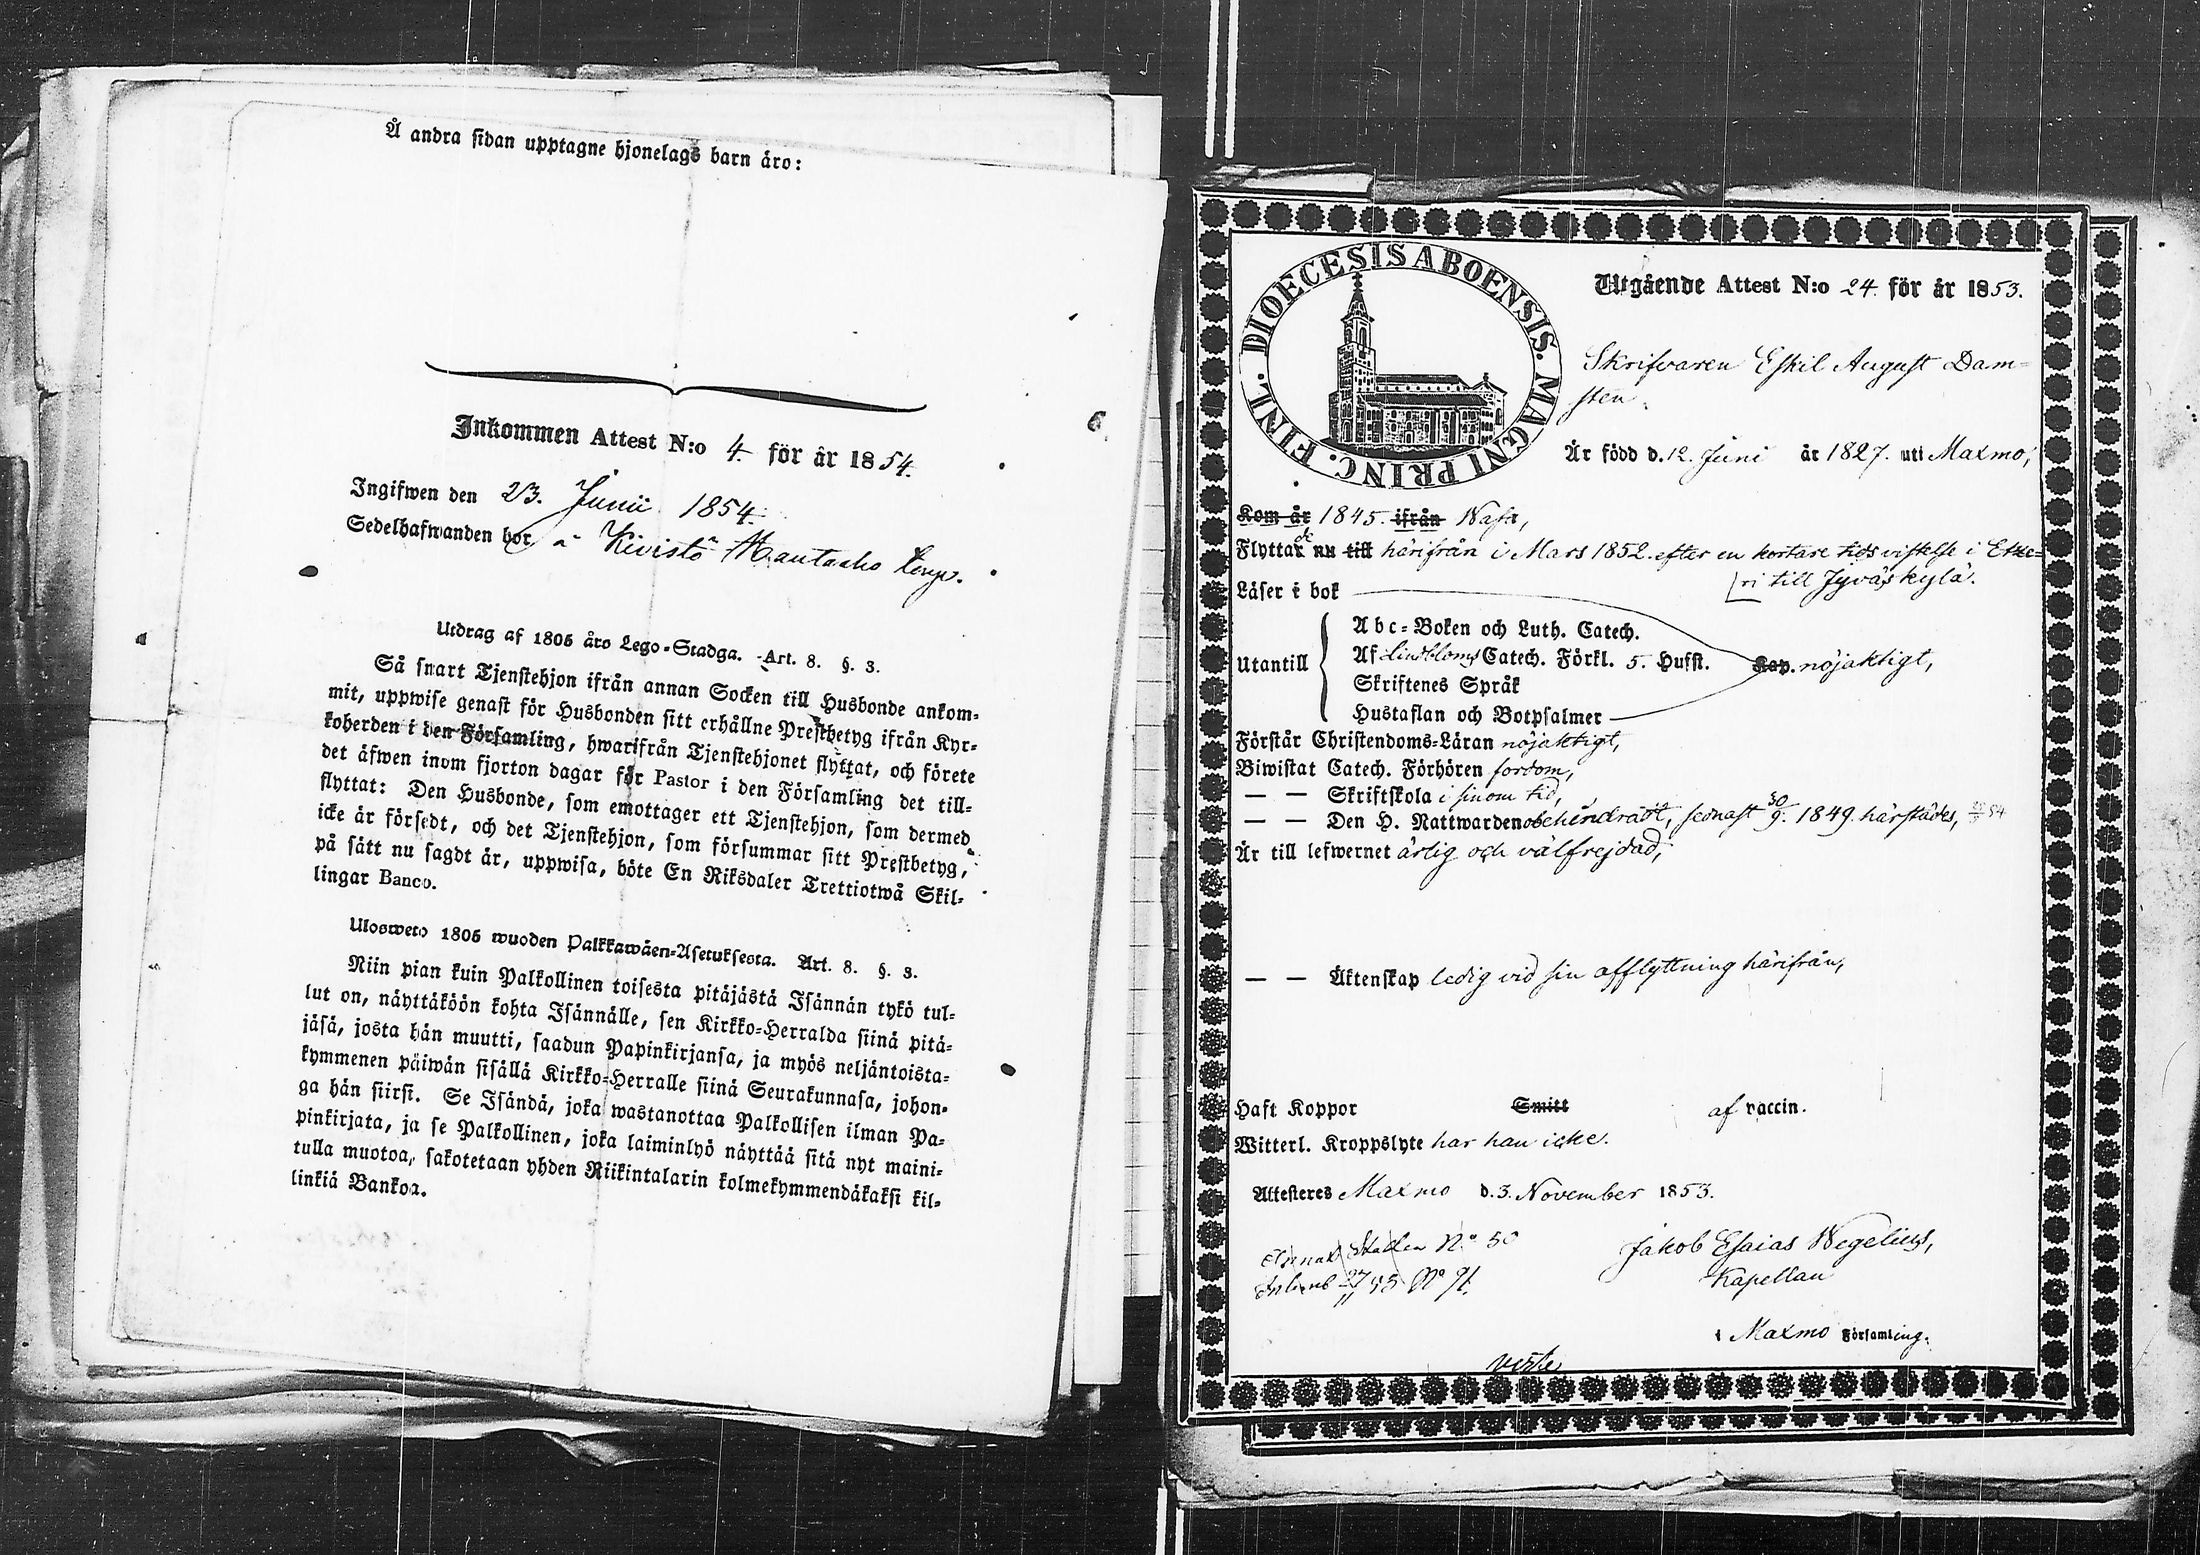 Å andra sidan upptagne hjonelags barn äro:
Inkommen Attest N:o 4. för år 1854.
Ingifwen den 23. Junii 1854.
Sedelhafwanden bor å Kivistö
Utdrag af 1805 års Lego-Stadga. Art. 8. §. 3.
Så snart Tjenstehjon ifrån annan Socken till Husbonde ankom-
mit, uppwise genast för Husbonden sitt erhållne Prestbetyg ifrån Kyr-
koherden i den Församling, hwarifrån Tjenstehjonet flyttat, och förete
det äfwen inom fjorton dagar för Pastor i den Församling det till-
flyttat: Den Husbonde, som emottager ett Tjenstehjon, som dermed
icke är försedt, och det Tjenstehjon, som försummar sitt Prestbetyg,
på sätt nu sagdt är, uppwisa, böte En Riksdaler Trettiotwå Skil-
lingar Banco.
Ulosweto 1805 wuoden Palkkawäen-Asetuksesta. Art. 8. §. 3.
Niin pian kuin Palkollinen toisesta pitäjästä Isännän tykö tul-
lut on, näyttäköön kohta Isännälle, sen Kirkko-Herralda siinä pitä-
jäsä, josta hän muutti, saadun Papinkirjansa, ja myös neljäntoista-
kymmenen päiwän sisällä Kirkko-Herralle siinä Seurakunnasa, johon-
ga hän siirsi. Se Isändä, joka wastanottaa Palkollisen ilman Pa-
pinkirjata, ja se Palkollinen, joka laiminlyö näyttää sitä nyt maini-
tulla muotoa, sakotetaan yhden Riikintalarin kolmekymmendäkaksi kil-
linkiä Bankoa.
DIOECESIS ABOENSIS. MAGNI PRINC. FINL.
Utgående Attest N:o 24. för år 1853.
Skrifvaren Eskil August Dam-
sten.
Är född d. 12. Juni år 1827. uti Maxmo,
Kom år 1845. ifrån Wasa,
Flyttade nu till härifrån i Mars 1852. efter en kortare tids vistelse i Etse-
ri till Jyväskylä.
Läser i bok
Abc-Boken och Luth. Catech.
Utantill Af Lindbloms Catech. Förkl. 5. Hufst. Kap. nöjaktigt,
Skriftenes Språk
Hustaflan och Botpsalmer
Förstår Christendoms-Läran nöjaktigt,
Biwistat Catech. Förhören fordom,
— — Skriftskola i sinom tid,
— — Den H. Nattwarden obehindradt, sednast 30/9. 1849. härstädes,
Är till lefwernet ärlig och välfrejdad,
— — Äktenskap ledig vid sin afflyttning härifrån,
Haft Koppor Smitt af vaccin.
Witterl. Kroppslyte har han icke.
Attesteres Maxmo d. 3. November 1853.
Staden N:o 50
27/11 53 No 91.
Jakob Esaias Wegelius,
Kapellan
i Maxmo Församling.